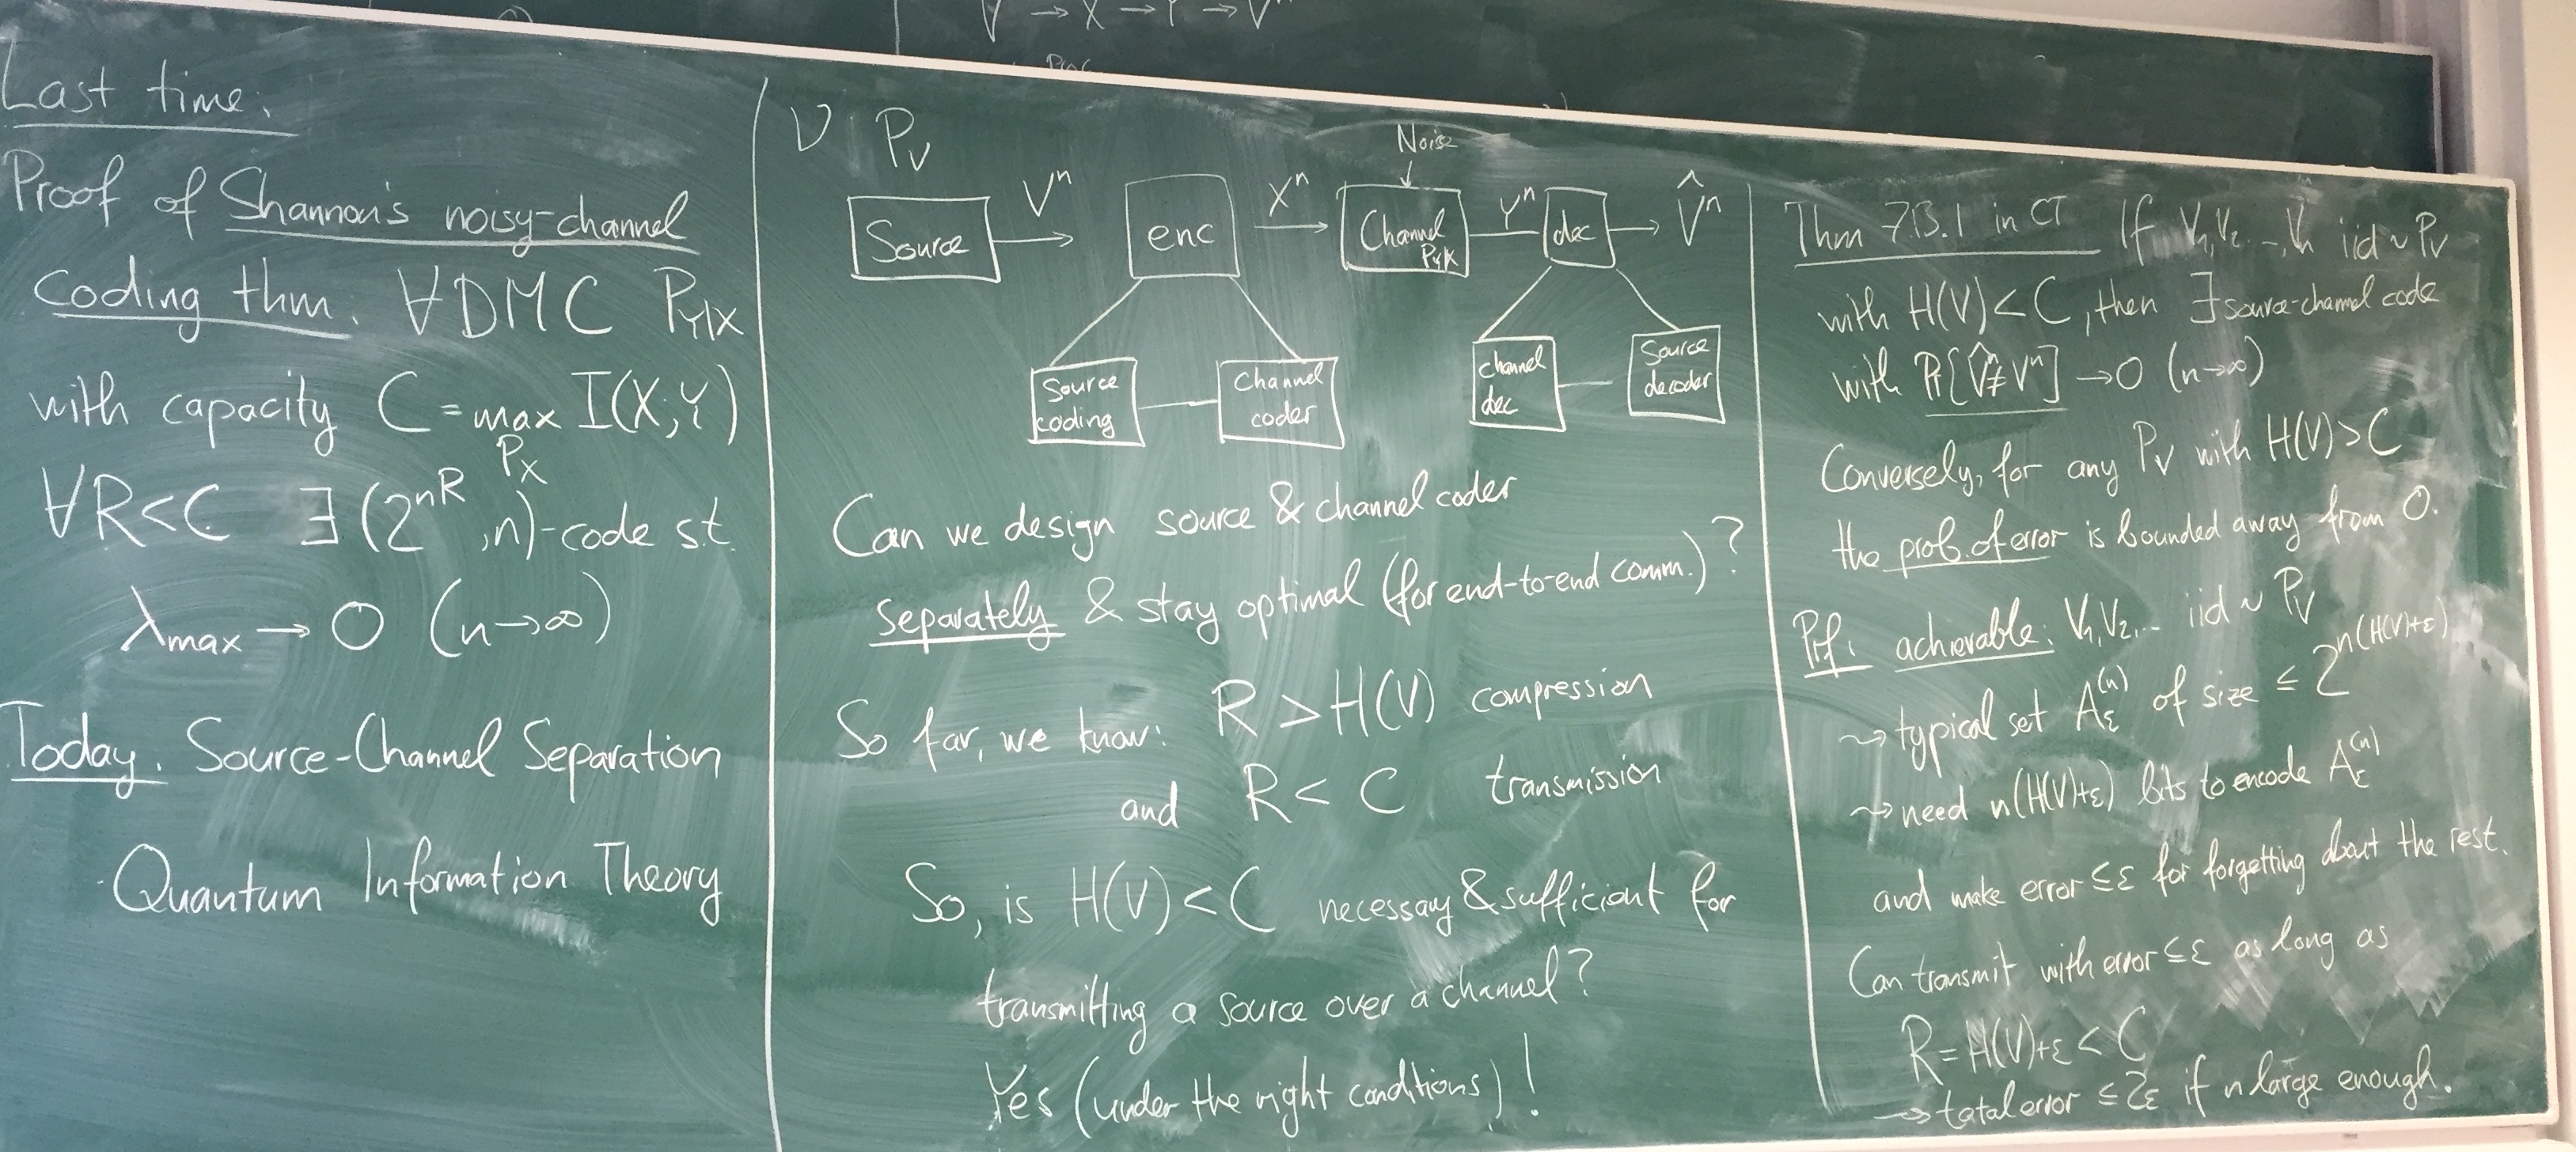 V → X → Y → V
Last time:
Proof of Shannon's noisy-channel
coding thm. ∀DMC P_{Y|X}
with capacity C = max_{P_X} I(X;Y)
∀R<C ∃(2^{nR},n)-code s.t.
λ_max → 0 (n→∞)
Today. Source-Channel Separation
Quantum Information Theory
V P_V
Noise
Source
V^n
enc
X^n
Channel
P_{Y|X}
Y^n
dec
V̂^n
Source
coding
Channel
coder
channel
dec
Source
decoder
Can we design source & channel coder
separately & stay optimal (for end-to-end comm.)?
So far, we know: R > H(V) compression
and R < C transmission
So, is H(V) < C necessary & sufficient for
transmitting a source over a channel?
Yes (under the right conditions)!
Thm 7.13.1 in CT If V_1,V_2,..,V_n iid ~ P_V
with H(V)<C, then ∃ source-channel code
with Pr[V̂^n≠V^n] → 0 (n→∞)
Conversely, for any P_V with H(V)>C
the prob. of error is bounded away from 0.
Pf: achievable: V_1,V_2,.. iid ~ P_V
⇝ typical set A_ε^{(n)} of size ≤ 2^{n(H(V)+ε)}
⇝ need n(H(V)+ε) bits to encode A_ε^{(n)}
and make error ≤ε for forgetting about the rest.
Can transmit with error ≤ε as long as
R = H(V)+ε < C
→ total error ≤ 2ε if n large enough.